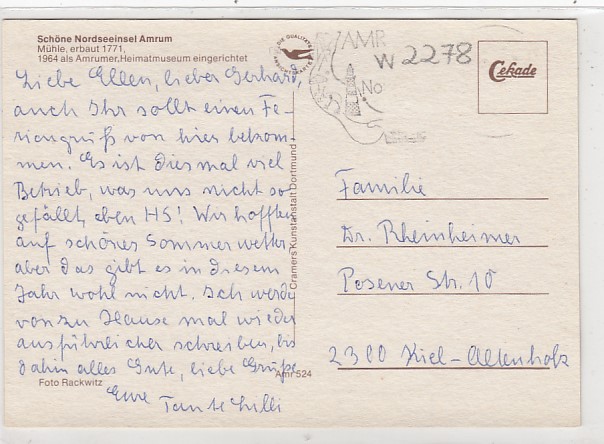 Schöne Nordseeinsel Amrum
Mühle, erbaut 1771,
1964 als Amrumer Heimatmuseum eingerichtet
Liebe Ellen, lieber Gerhard,
auch Ihr sollt einen Fe-
riengruß von hier bekom-
men. Es ist diesmal viel
Betrieb, was uns nicht so
gefällt, eben HS! Wir hofften
auf schönes Sommerwetter,
aber das gibt es in diesem
Jahr wohl nicht. Ich werde
von zu Hause mal wieder
ausführlicher schreiben, bis
dahin alles Gute, liebe Grüße
Eure Tante Lilli
Foto Rackwitz
Amr 524
Cramers Kunstanstalt Dortmund
DIE QUALITÄTS
AMR
No
W 2278
Cekade
Familie
Dr. Rheinheimer
Posener Str. 10
2300 Kiel-Altenholz